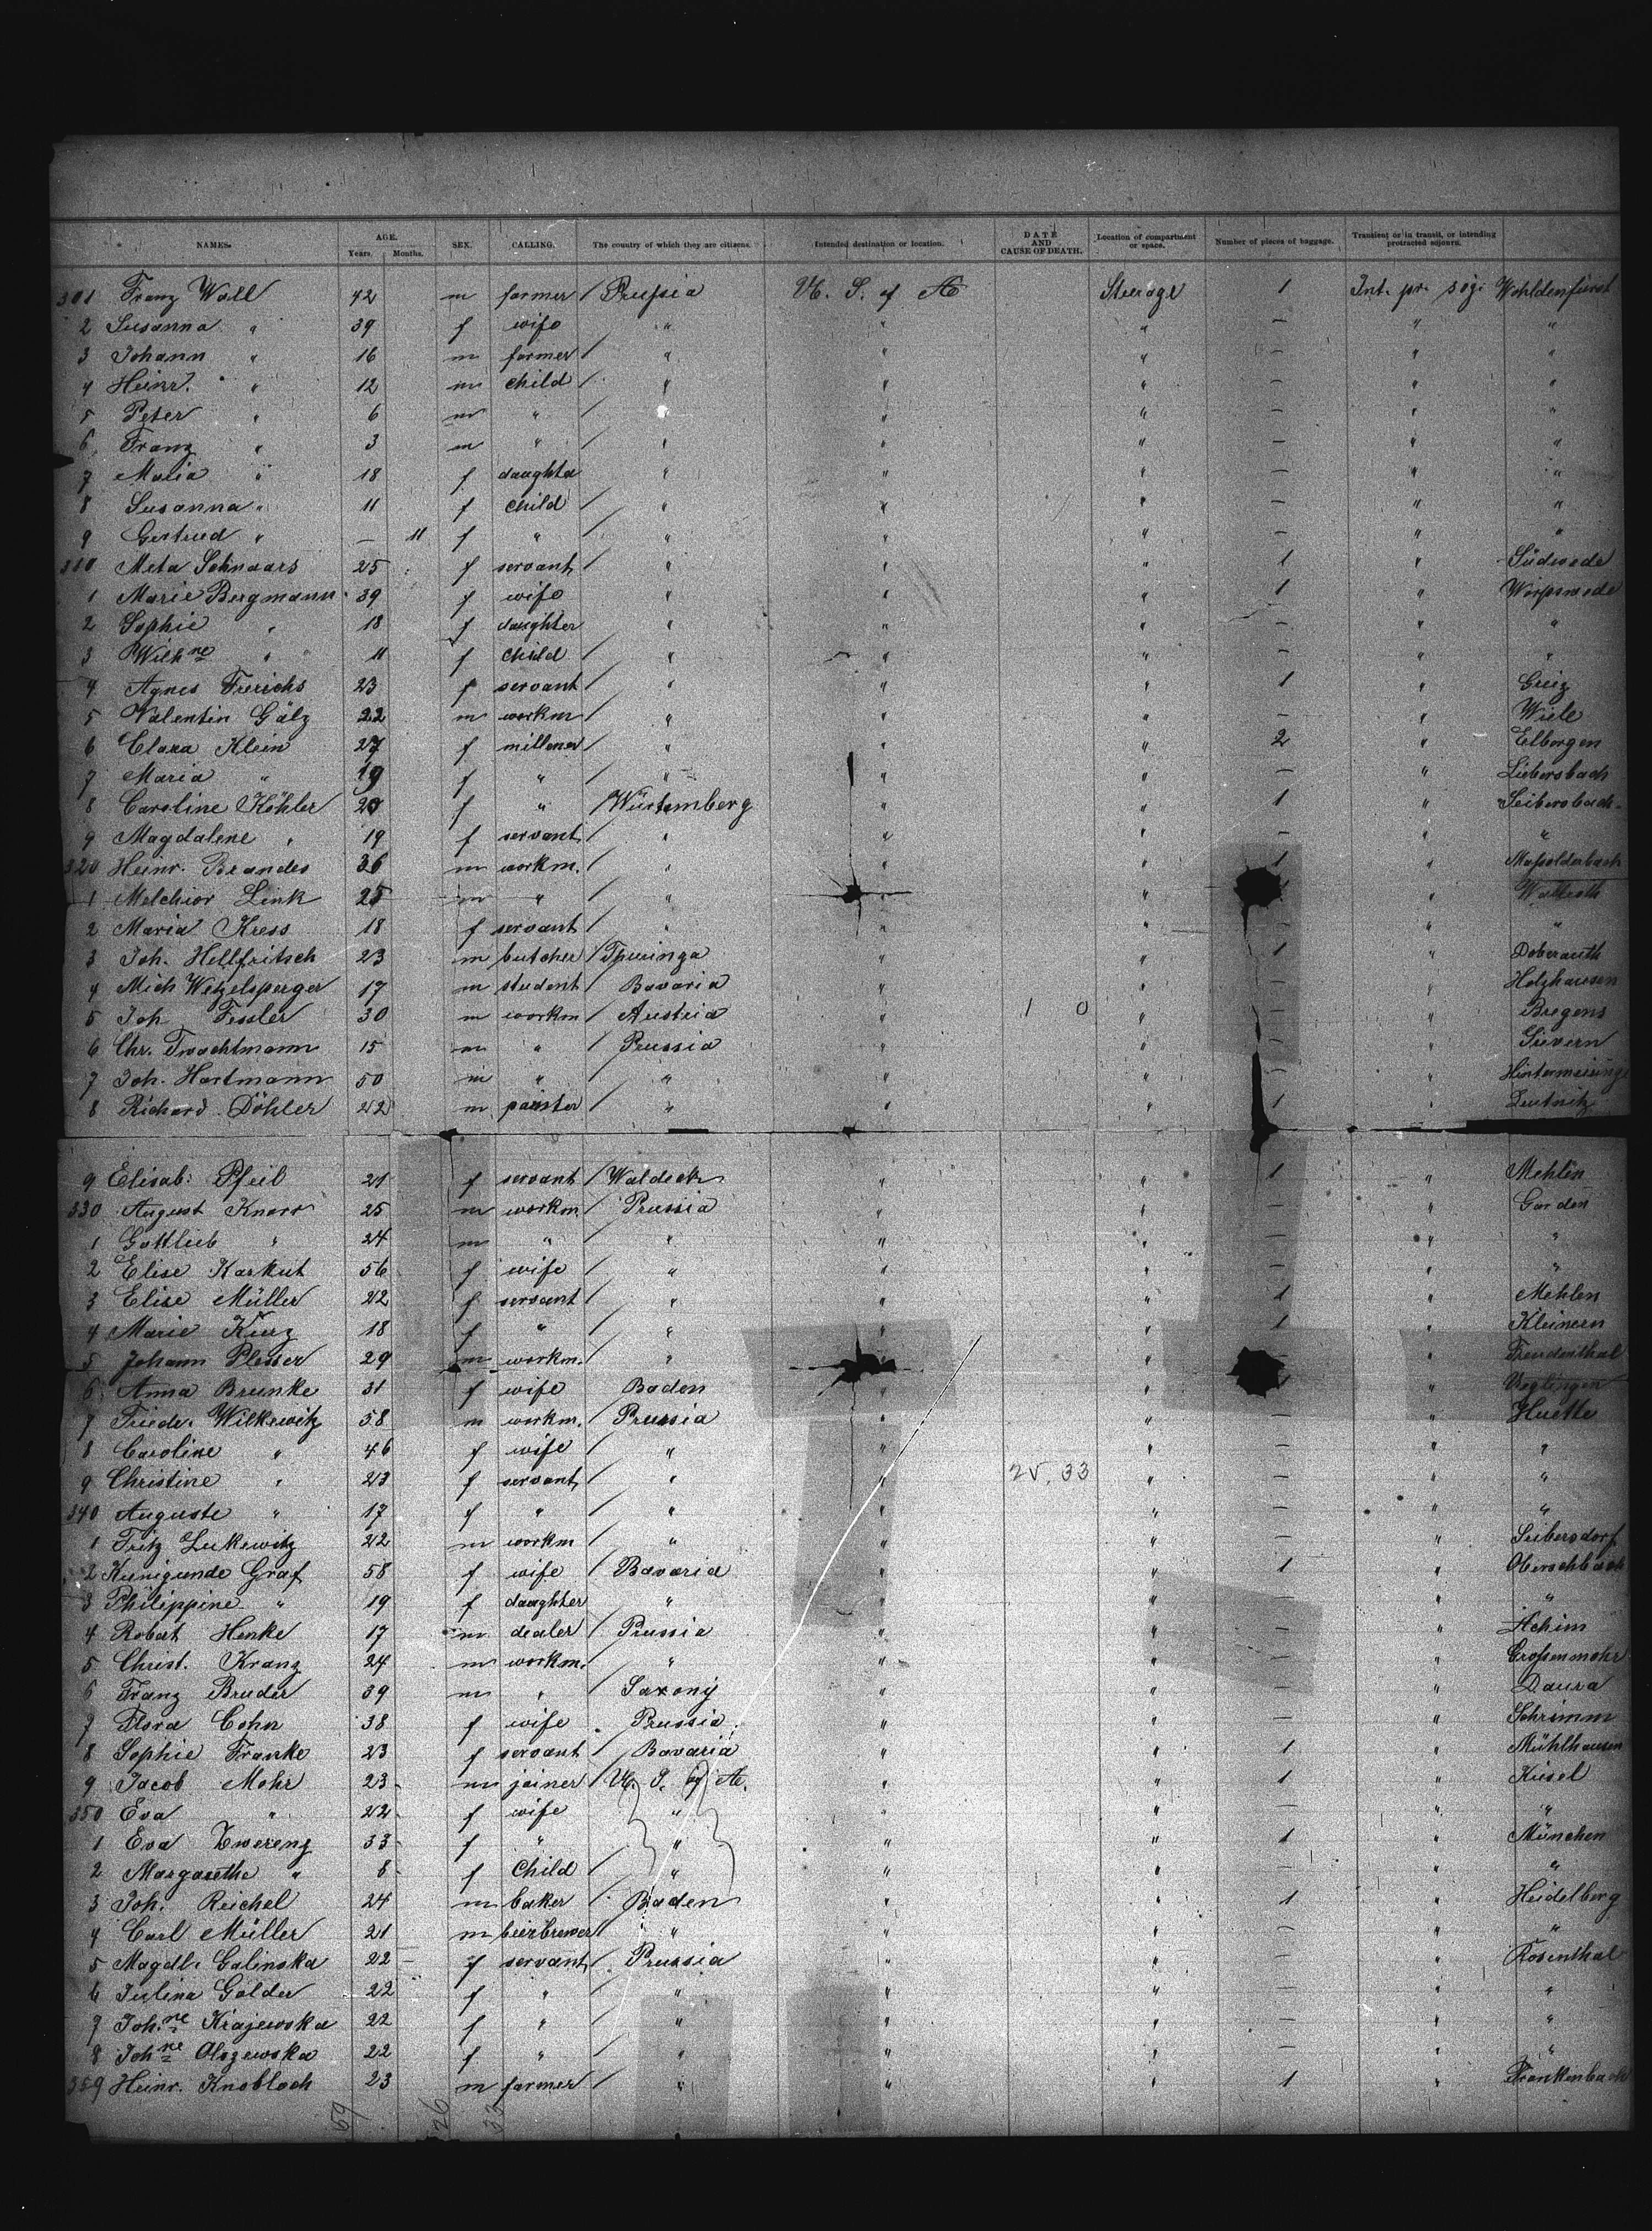 NAMES. AGE. Years. Months. SEX. CALLING. The country of which they are citizens. Intended destination or location. DATE AND CAUSE OF DEATH. Location of compartment or space. Number of pieces of baggage. Transient or in transit, or intending protracted sojourn.
301 Franz Wall 42 m farmer / Prussia U. S. of A Steerage 1 Int. pr. soj. Wohldenfürst
2 Susanna " 39 f wife " " " — " "
3 Johann " 16 m farmer / " " " — " "
4 Heinr. " 12 m child / " " " — " "
5 Peter " 6 m " / " " " — " "
6 Franz " 3 m " / " " " — " "
7 Maria " 18 f daughter " " " — " "
8 Susanna " 11 f child / " " " — " "
9 Gertrud " — 11 f " / " " " — " "
310 Meta Schnaars 25 f servant " " " 1 " Südwede
1 Marie Bergmann 39 f wife " " " 1 " Worpswede
2 Sophie " 18 f daughter " " " — " "
3 Wilhne " 11 f child " " " — " "
4 Agnes Frerichs 23 f servant / " " " 1 " Greiz
5 Valentin Gälz 22 m workm / " " " — " Wiele
6 Clara Klein 27 f milliner / " " " 2 " Elbergen
7 Maria " 19 f " / " " " — " Liebersbach
8 Caroline Köhler 20 f " / Würtemberg " " 1 " Leibersbach
9 Magdalene " 19 f servant / " " " — " "
320 Heinr. Brandes 36 m workm. / " " " 1 "
1 Melchior Link 25 m " " " " "
2 Maria Kress 18 f servant / " " " " "
3 Joh. Hellfritsch 23 m butcher / Tpuringa " " 1 " Doberauth
4 Mich Wetzelsperger 17 m student / Bavaria " " — " Holzhausen
5 Joh Fessler 30 m workm / Austria " 1 0 " — " Bregens
6 Chr. Trachtmann 15 m " / Prussia " " — " Sievern
7 Joh. Hartmann 50 m " / " " " — "
8 Richard Döhler 22 m painter / " " " 1 "
9 Elisab: Pfeil 21 f servant / Waldeck " " 1 " Mehlen
330 August Knorr 25 m workm. / Prussia " " — " Garden
1 Gottlieb " 24 m " / " " " — " "
2 Elise Karkut 56 f wife / " " " — " "
3 Elise Müller 22 f servant / " " " 1 " Mehlen
4 Marie Kurz 18 f " / " " " 1 " Kleinern
5 Johann Plesser 29 m workm. " " " " Freudenthal
6 Anna Brunke 31 f wife Baden " " "
7 Friedr. Wilkewitz 58 m workm. / Prussia " " — " Huette
8 Caroline " 46 f wife / " " " — " "
9 Christine " 23 f servant / " " 25, 33 " — " "
340 Auguste " 17 f " / " " " — " "
1 Fritz Lukewitz 22 m workm " " " — " Seibersdorf
2 Kunigunde Graf 58 f wife / Bavaria " " 1 "
3 Philippine " 19 f daughter " " " — " "
4 Robert Henke 17 m dealer / Prussia " " — " Achim
5 Christ. Kranz 24 m workm. " " " — " Grossenmohr
6 Franz Bruder 39 m " / Saxony " " — " Daura
7 Flora Cohn 38 f wife Prussia " " — " Schrimm
8 Sophie Franke 23 f servant / Bavaria " " 1 " Mühlhausen
9 Jacob Mohr 23 m joiner / U. S. of A. " " 1 " Kusel
350 Eva " 22 f wife " " " — " "
1 Eva Zwereng 33 f " / " " " 1 " München
2 Margarethe " 8 f child / " " " — " "
3 Joh. Reichel 24 m baker / Baden " " 1 " Heidelberg
4 Carl Müller 21 m beerbrewer / " " " — " "
5 Magdl. Galinska 22 f servant / Prussia " " — " Rosenthal
6 Julina Golder 22 f " / " " " — " "
7 Joh.ne Krajewska 22 f " / " " " — " "
8 Johne Olszewska 22 f " / " " " — " "
359 Heinr. Knobloch 23 m farmer / " " " 1 " Frankenbach
59 26 33